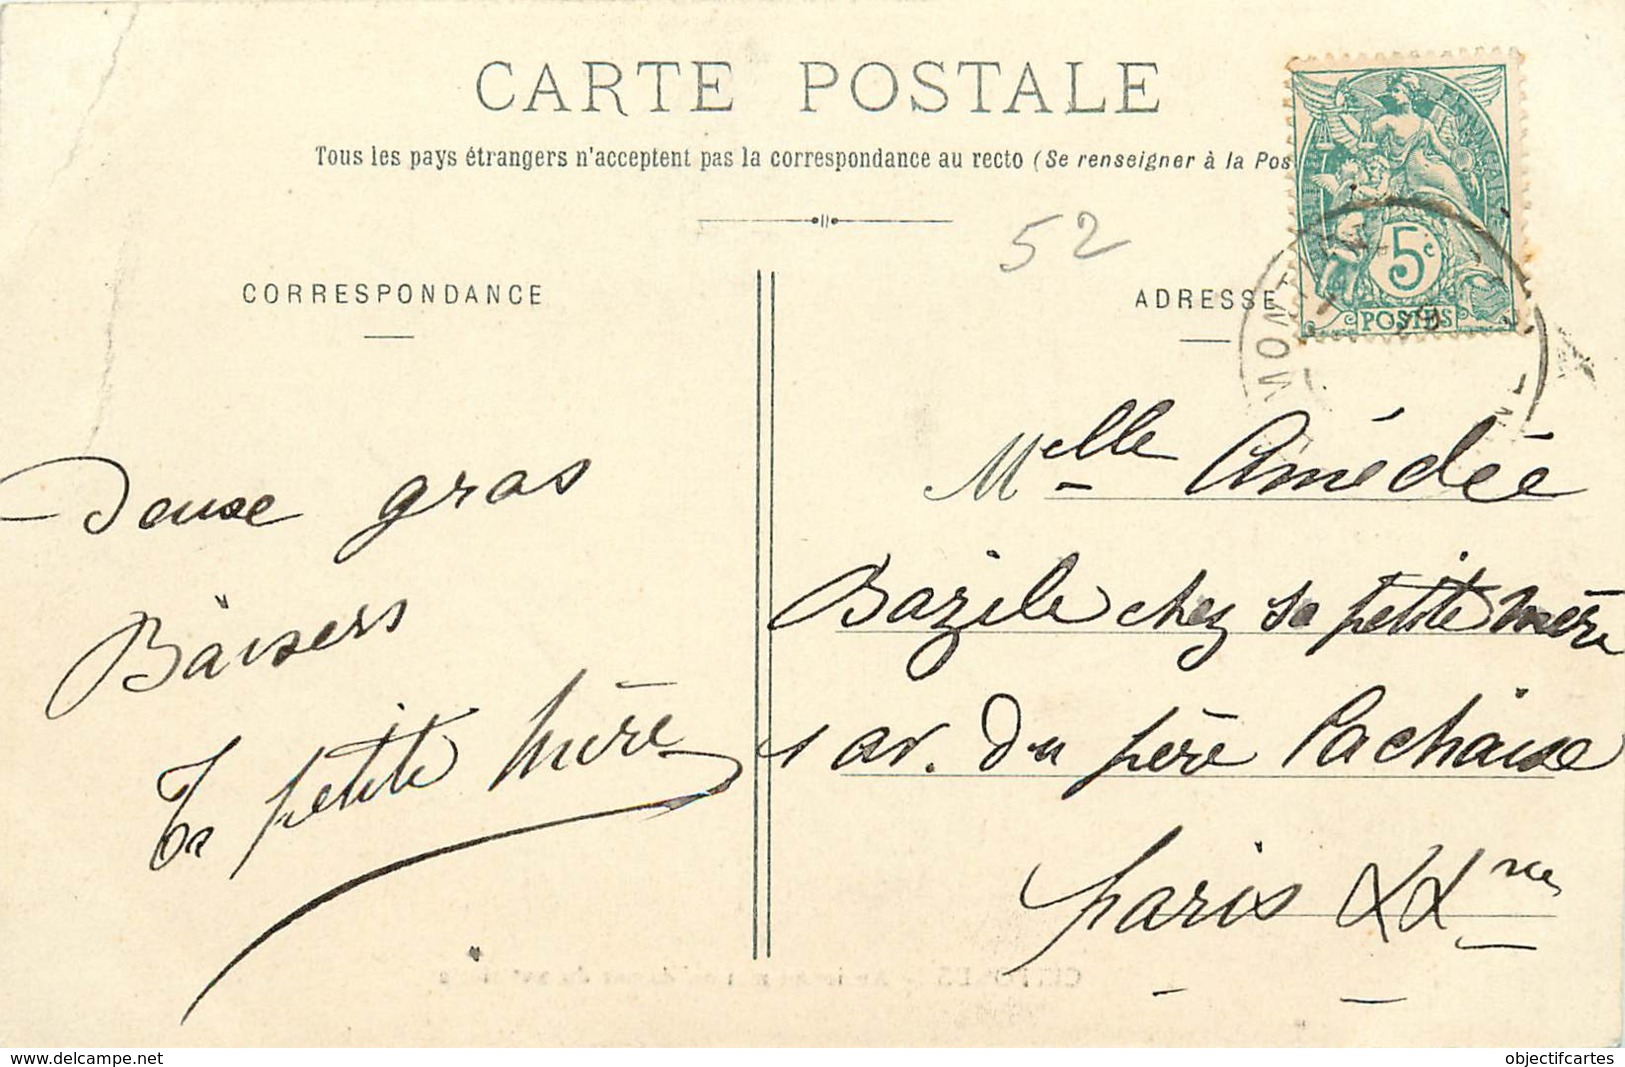 CARTE POSTALE
Tous les pays étrangers n'acceptent pas la correspondance au recto (Se renseigner à la Pos
52
CORRESPONDANCE
ADRESSE
5c
POSTES
MONT
Deuxe gros
Baisers
Ta petite mère
Melle Amédée
Bazile chez sa petite mère
1 av. Du père Lachaise
Paris XXme
www.delcampe.net
objectifcartes